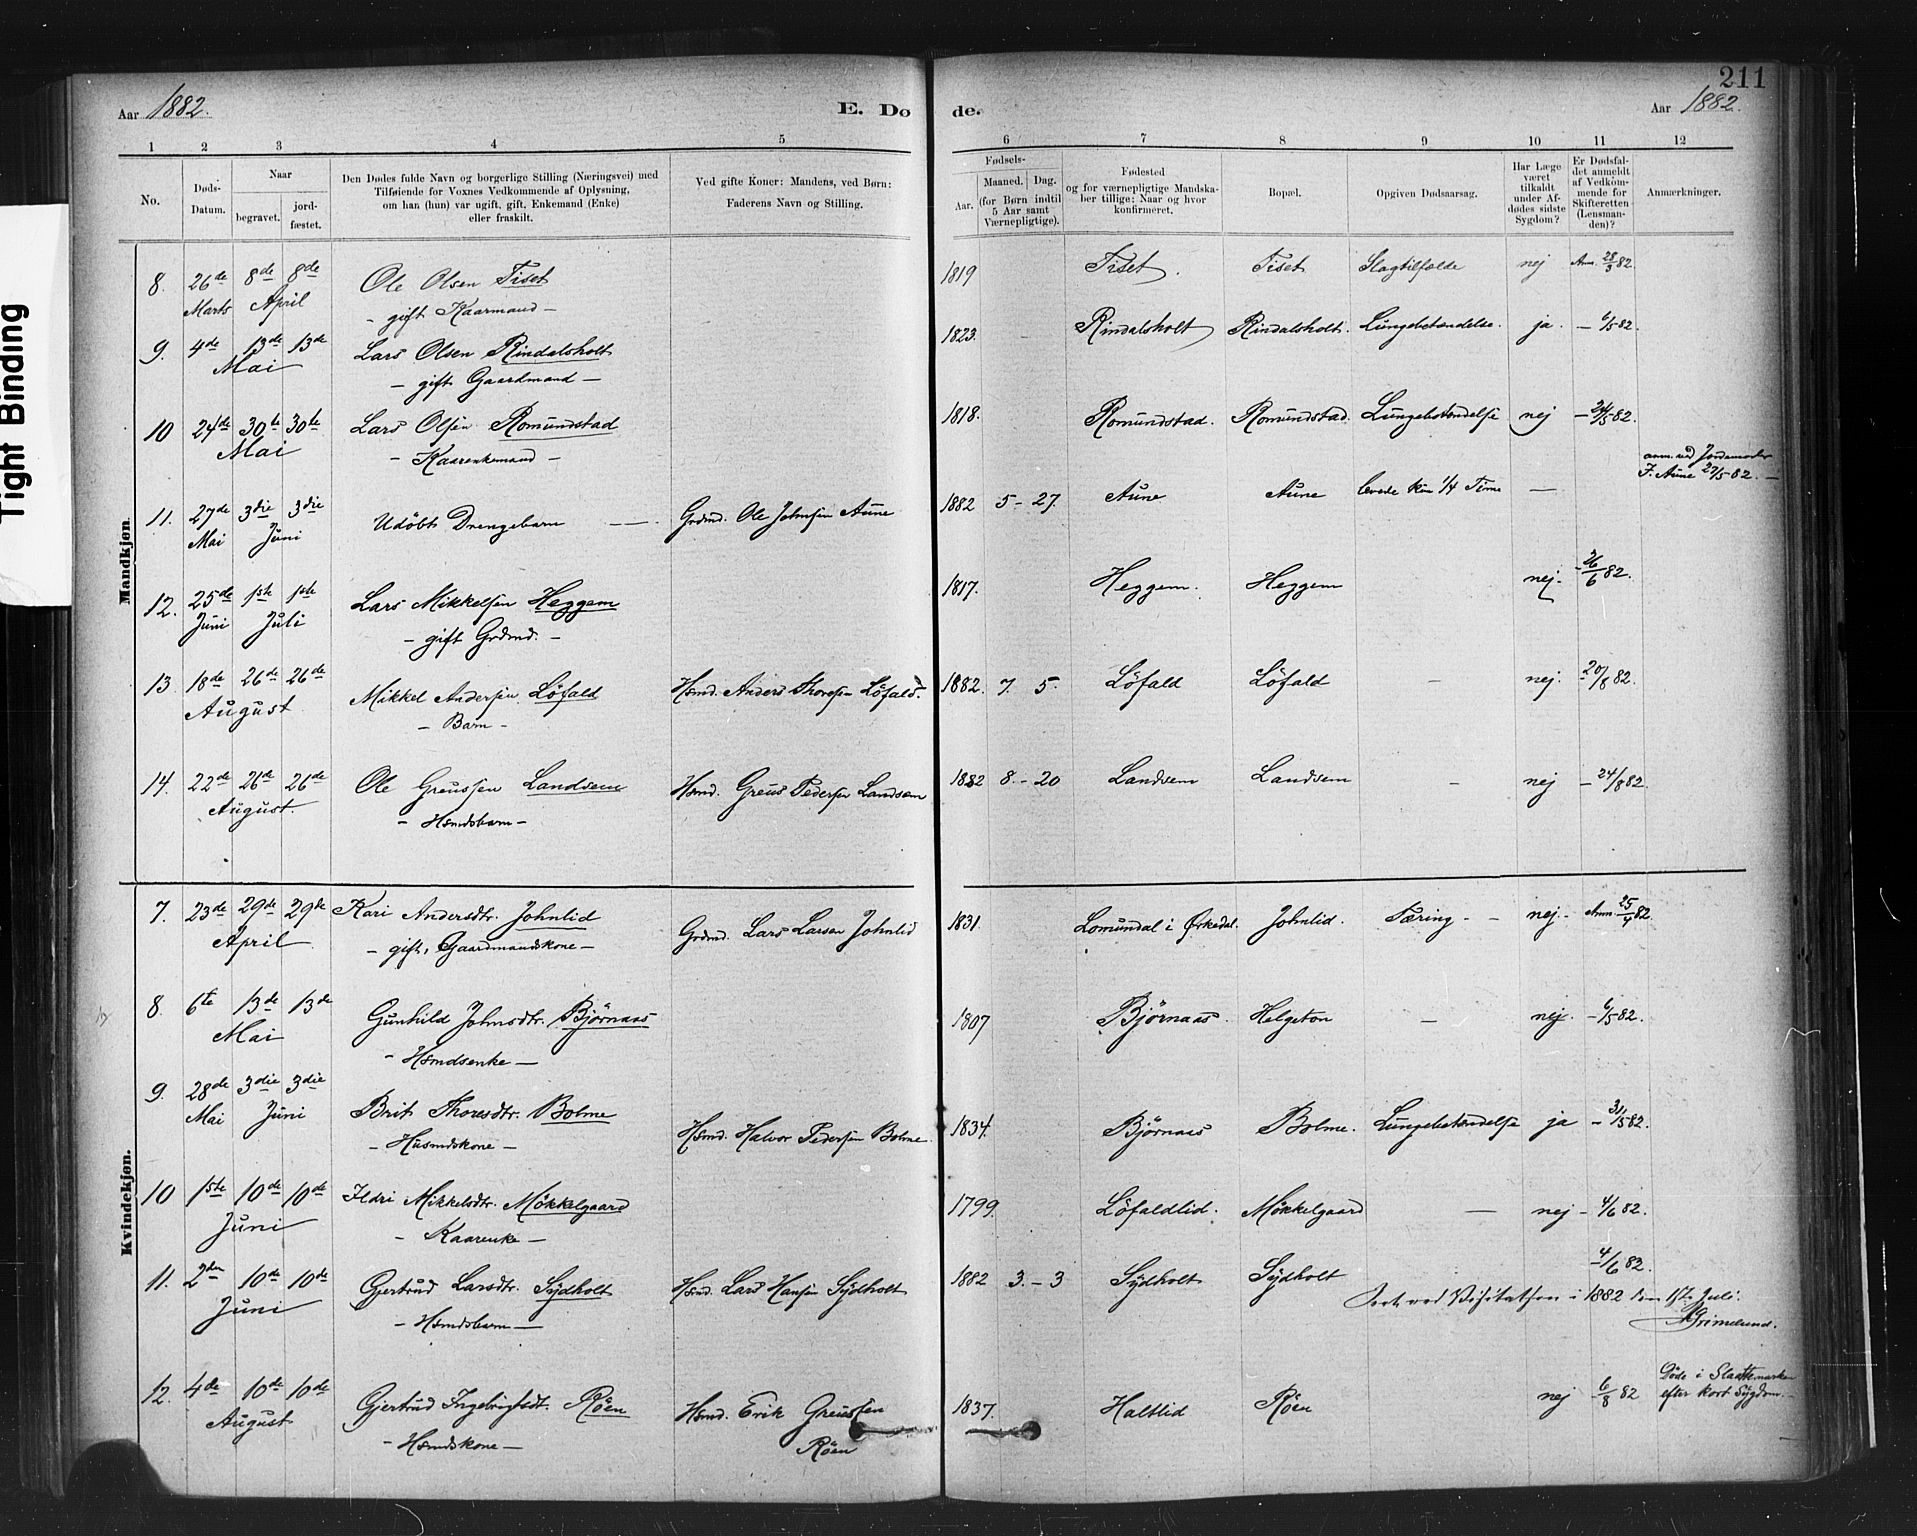 211
Aar 1882.
E. Dø
de.
Aar 1882.
1 2 3 4 5 6 7 8 9 10 11 12
No.
Døds-
Datum.
Naar
begravet.
jord-
fæstet.
Den Dødes fulde Navn og borgerlige Stilling (Næringsvei) med
Tilføiende for Voxnes Vedkommende af Oplysning,
om han (hun) var ugift, gift, Enkemand (Enke)
eller fraskilt.
Ved gifte Koner: Mandens, ved Børn:
Faderens Navn og Stilling.
Fødsels-
Aar.
Maaned. Dag.
(for Børn indtil
5 Aar samt
Værnepligtige).
Fødested
og for værnepligtige Mandska-
ber tillige: Naar og hvor
konfirmeret.
Bopæl.
Opgiven Dødsaarsag.
Har Læge
været
tilkaldt
under Af-
dødes sidste
Sygdom?
Er Dødsfal-
det anmeldt
af Vedkom-
mende for
Skifteretten
(Lensman-
den)?
Anmærkninger.
Tight Binding
Mandkjøn.
8. 26de 8de 8de Ole Olsen Tiset 1819 Tiset. Tiset Slagtilfælde nej Anm. 28/3 82.
Marts April - gift Kaarmand -
9. 4de 13de 13de Lars Olsen Rindalsholt 1823. Rindalsholt Rindalsholt. Lungebetændelse. ja. - 6/5 82.
Mai - gift Gaardmand -
10 24de 30te 30te Lars Olsen Romundstad 1818. Romundstad. Romundstad. Lungebetændelse nej - 24/5 82.
Mai - Kaarenkemand -
anm. ved Jordemoder
J. Aune 27/5 82. -
11. 27de 3die 3die Udøbt Drengebarn - Grdmd. Ole Johnsen Aune 1882 5 - 27. Aune Aune levede kun 1/4 Time -
Mai Juni
12. 25de 1ste 1ste Lars Mikkelsen Heggem 1817. Heggem. Heggem nej. - 26/6 82.
Juni Juli - gift Grdmd. -
13. 18de 26de 26de Mikkel Andersen Löfald Hsmd. Anders Thoresen Löfald. 1882. 7. 5. Löfald Löfald - nej. - 20/8 82.
August - Barn -
14. 22de 26de 26de Ole Greussen Landsem Hsmd. Greus Pedersen Landsem 1882 8. - 20 Landsem Landsem - nej - 24/8 82.
August. - Hsmdsbarn -
Kvindekjøn.
7. 23de 29de 29de Kari Andersdtr. Johnlid Grdmd. Lars Larsen Johnlid 1831. Lomundal i Ørkedal. Johnlid. Tæring - - nej. - Anm. 25/4 82.
April - gift, Gaardmandskone -
8. 6te 13de 13de Gunhild Johnsdtr. Bjørnaas 1807 Bjørnaas. Helgeton - nej. - 6/5 82.
Mai - Hsmdsenke -
9. 28de 3die 3die Brit Thoresdtr. Bolme Hsmd. Halvor Pedersen Bolme. 1834. Bjørnaas Bolme. Lungebetændelse ja - 31/5 82.
Mai Juni - Husmdskone -
10 1ste 10de 10de Ildri Mikkelsdtr. Møkkelgaard 1799. Löfaldlid. Møkkelgaard - nej - 4/6 82.
Juni - Kaarenke -
11. 2den 10de 10de Gjertrud Larsdtr. Sydholt Hsmd. Lars Hansen Sydholt 1882 3. - 3 Sydholt Sydholt - 4/6 82.
Juni - Hsmdsbarn -
ved Visitatsen i 1882 den 1ste Juli.
Grimelund.
12. 4de 10de 10de Gjertrud Ingebrigtsdt. Röen Hsmd. Erik Greussen 1837. Haltlid Röen nej - 6/8 82
August - Hsmdskone - Röen
Døde i Slaattemarken
efter kort Sygdom. -